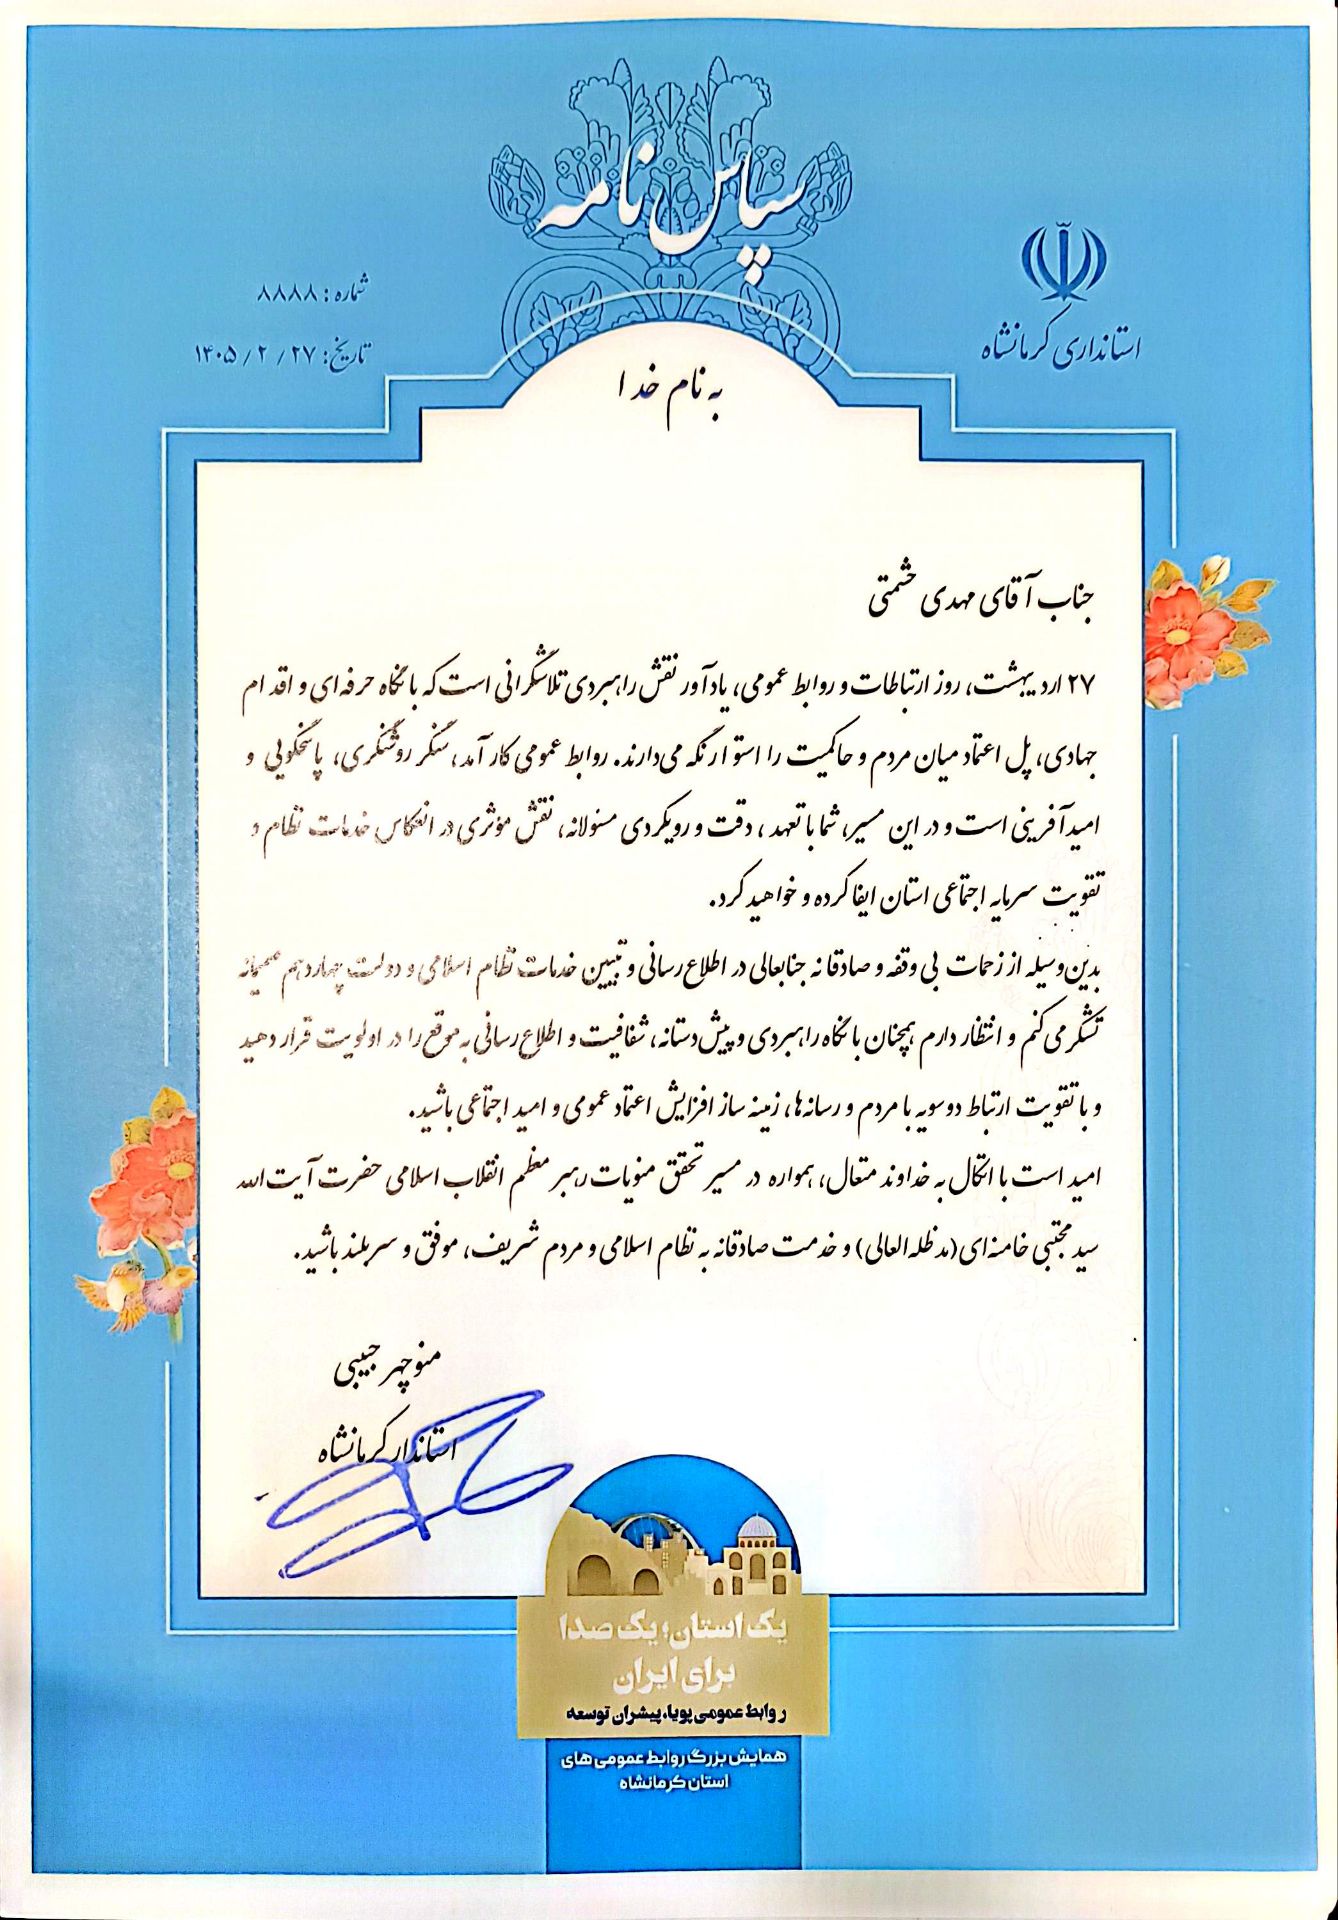 سپاس نامه
استانداری کرمانشاه
شماره: ۸۸۸۸
تاریخ: ۱۴۰۵/۲/۲۷
به نام خدا
جناب آقای مهدی حشمتی
۲۷ اردیبهشت، روز ارتباطات و روابط عمومی، یادآور نقش راهبردی تلاشگرانی است که با نگاه حرفه‌ای و اقدام
جهادی، پل اعتماد میان مردم و حاکمیت را استوار نگه می‌دارند. روابط عمومی کارآمد، سنگر روشنگری، پاسخگویی و
امیدآفرینی است و در این مسیر، شما با تعهد، دقت و رویکردی مسئولانه، نقش مؤثری در انعکاس خدمات نظام و
تقویت سرمایه اجتماعی استان ایفا کرده و خواهید کرد.
بدین وسیله از زحمات بی وقفه و صادقانه جنابعالی در اطلاع رسانی و تبیین خدمات نظام اسلامی و دولت چهاردهم صمیمانه
تشکر می کنم و انتظار دارم همچنان با نگاه راهبردی و پیش‌دستانه، شفافیت و اطلاع رسانی به موقع را در اولویت قرار دهید
و با تقویت ارتباط دوسویه با مردم و رسانه‌ها، زمینه ساز افزایش اعتماد عمومی و امید اجتماعی باشید.
امید است با اتکال به خداوند متعال، همواره در مسیر تحقق منویات رهبر معظم انقلاب اسلامی حضرت آیت‌الله
سید مجتبی خامنه‌ای (مدظله‌العالی) و خدمت صادقانه به نظام اسلامی و مردم شریف، موفق و سربلند باشید.
منوچهر حبیبی
استاندار کرمانشاه
یک استان؛ یک صدا
برای ایران
روابط عمومی پویا، پیشران توسعه
همایش بزرگ روابط عمومی های
استان کرمانشاه